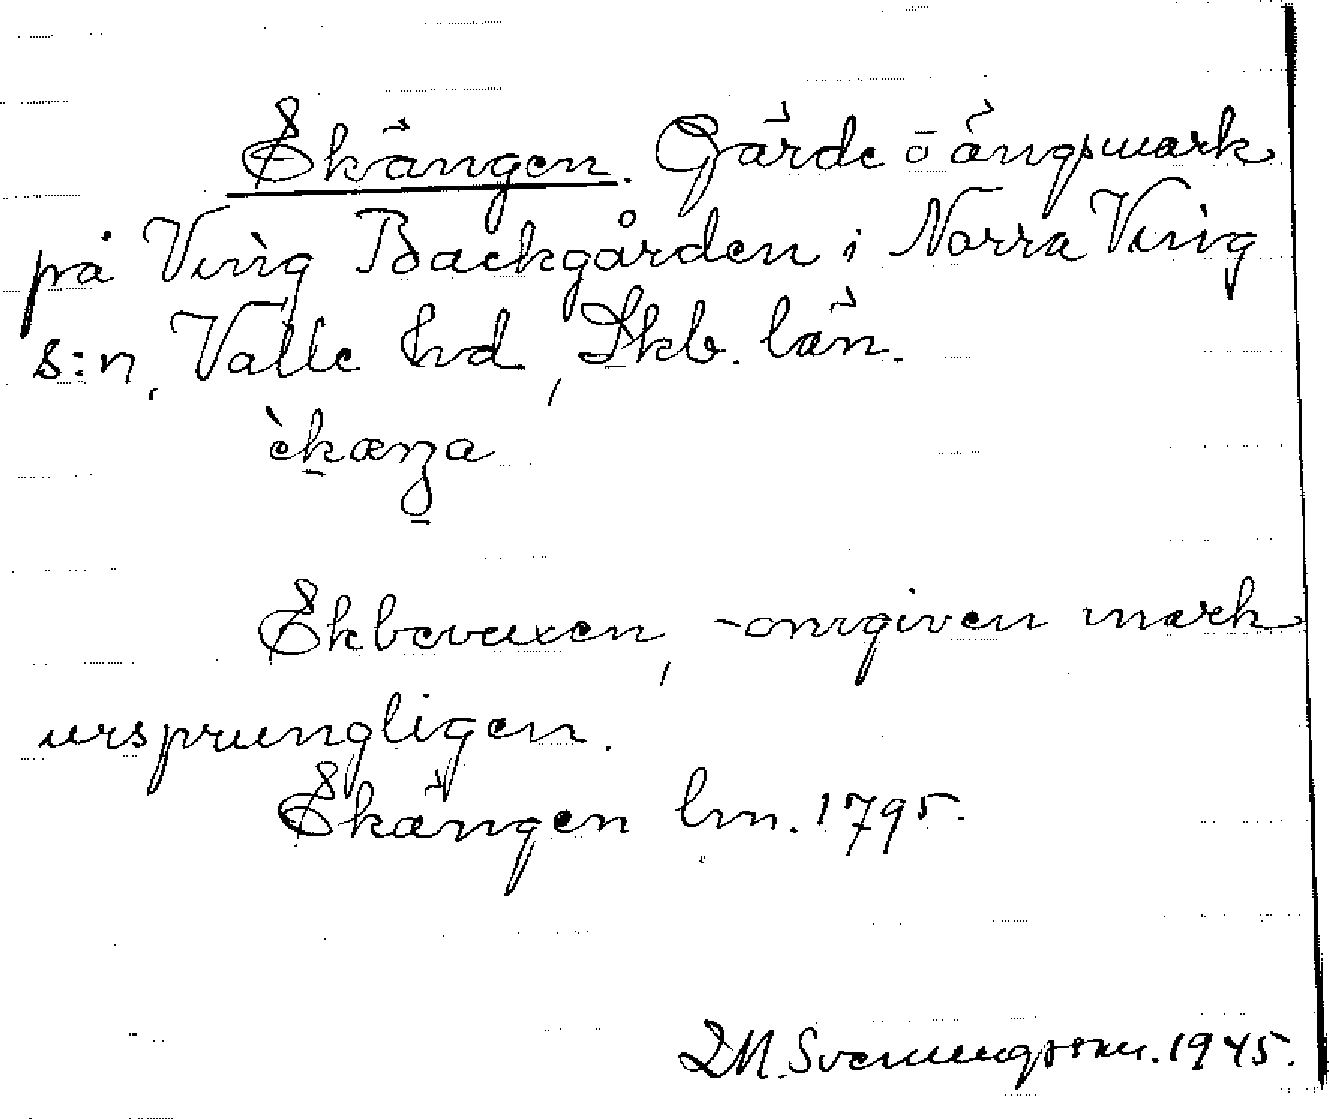 Ekängen. Gärde o ängsmark
på Ving Backgården i Norra Ving
s:n, Valle hd, Skb. län.
èkæŋa
Ekbevuxen, -omgiven mark
ursprungligen.
Ekängen lm. 1795.
Svenungsson. 1945.